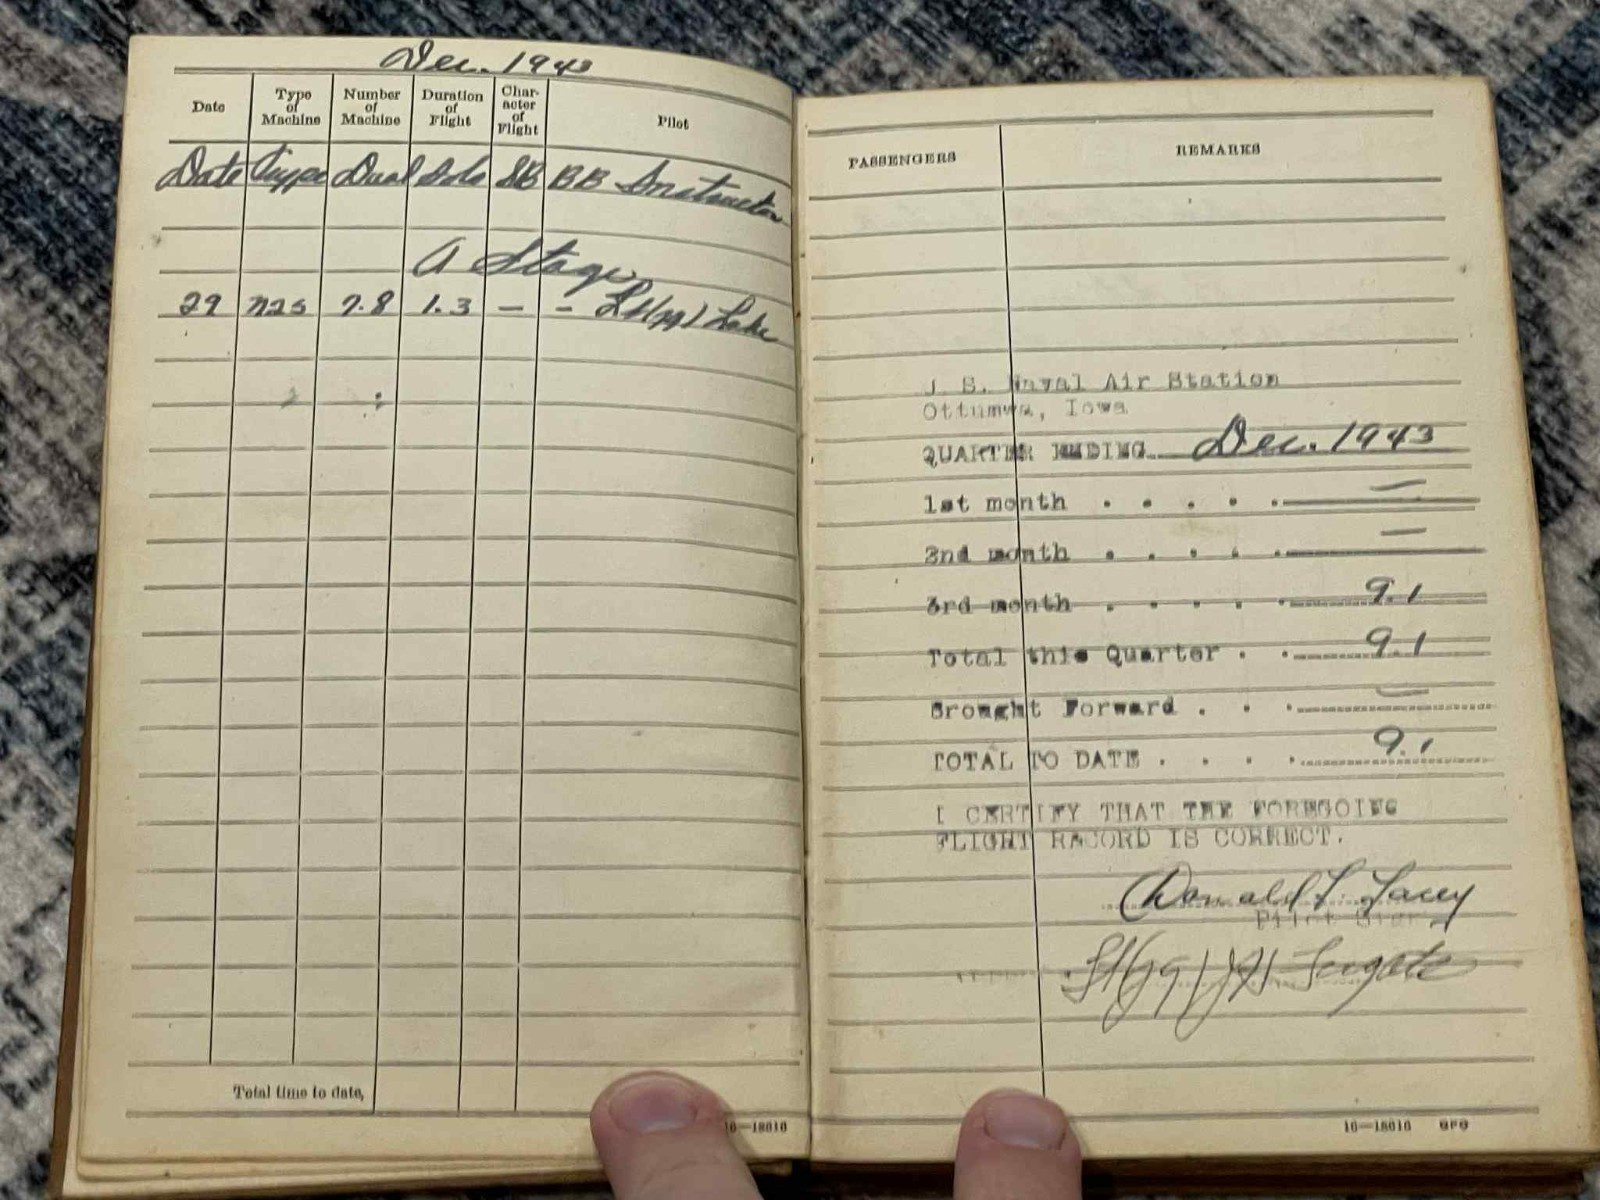 Dec. 1943
Date Type of Machine Number of Machine Duration of Flight Char-acter of Flight Pilot
Date Type Dual Solo SB BB Instructor
A Stage
29 N2S 7.8 1.3 - - Lt(jg) Lake
Total time to date,
16—18616
PASSENGERS REMARKS
U. S. Naval Air Station
Ottumwa, Iowa
QUARTER ENDING Dec. 1943
1st month . . . . . —
2nd month . . . . . —
3rd month . . . . . 9.1
Total this Quarter . . 9.1
Brought Forward . . . —
TOTAL TO DATE . . . . 9.1
I CERTIFY THAT THE FOREGOING
FLIGHT RECORD IS CORRECT.
Donald L. Lacey
Lt(jg)
16—18616 GPO